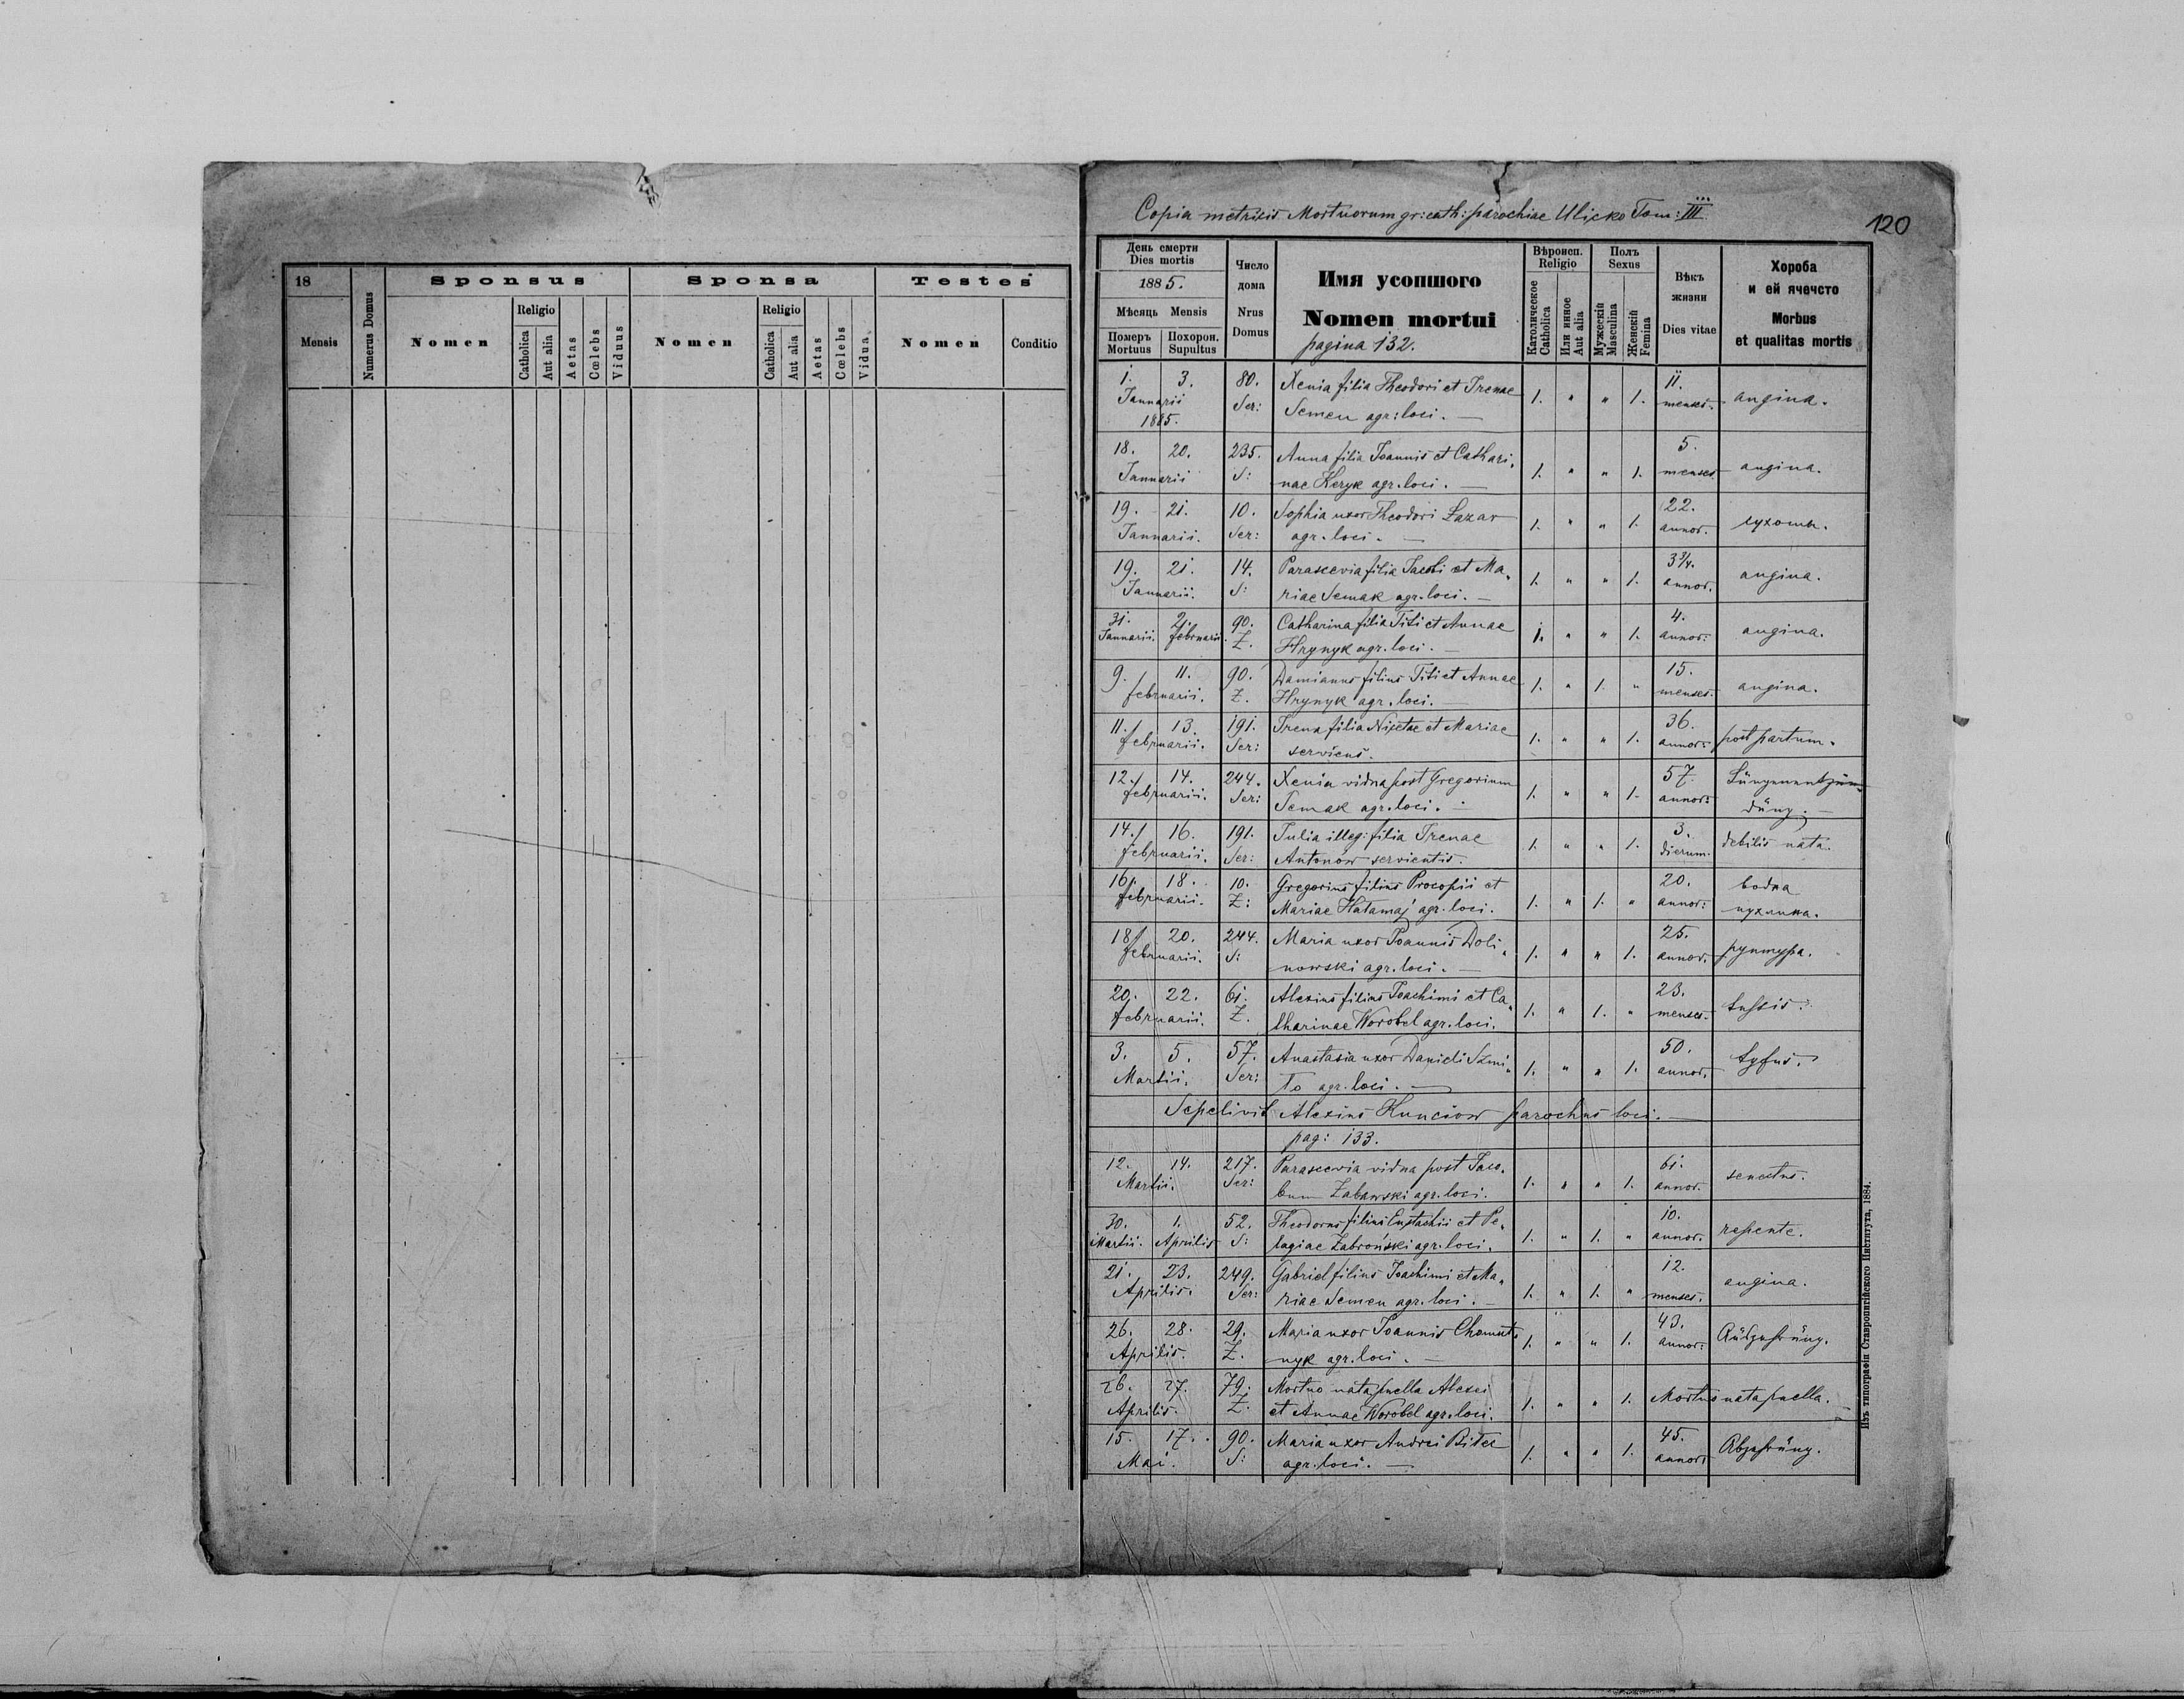 18
Mensis
Numerus Domus
Sponsus
Nomen
Religio
Catholica
Aut alia
Aetas
Cœlebs
Viduus
Sponsa
Nomen
Religio
Catholica
Aut alia
Aetas
Cœlebs
Vidua
Testes
Nomen
Conditio
Copia metricis Mortuorum gr: cath: parochiae Ulicko Tom: III
120
День смерти
Dies mortis
1885.
Мѣсяць Mensis
Померъ
Mortuus
Похорон.
Supultus
Число
дома
Nrus
Domus
Имя усопшого
Nomen mortui
pagina 132.
Вѣроисп.
Religio
Католическое
Catholica
Или инное
Aut alia
Полъ
Sexus
Мужескій
Masculina
Женскій
Femina
Вѣкъ
жизни
Dies vitae
Хороба
и ей ячечсто
Morbus
et qualitas mortis
1. 3. 80. Xenia filia Theodori et Irenae 1. " " 1. 11. angina.
Januarii Ser: Semen agr: loci. — menses.
1885.
18. 20. 235. Anna filia Joannis et Cathari, 1. " " 1. 5. angina.
Januarii S: nae Keryk agr. loci. — menses.
19. 21. 10. Sophia uxor Theodori Lazar 1. " " 1. 22. сухоты.
Januarii. Ser: agr. loci. — annor.
19. 21. 14. Parascevia filia Jacobi et Ma, 1. " " 1. 3 3/4. angina.
Januarii. S: riae Semak agr. loci. — annor.
31. 2. 90. Catharina filia Titi et Annae 1. " " 1. 4. angina.
Januarii. februarii. Z. Hrynyk agr. loci. — annor:
9. 11. 90. Damianus filius Titi et Annae 1. " 1. " 15. angina.
februarii. Z. Hrynyk agr. loci. — menses.
11. 13. 191. Irena filia Nicetae et Mariae 1. " " 1. 36. post partum.
februarii. Ser: serviens. annor:
12. 14. 244. Xenia vidua post Gregorium 1. " " 1. 57.
februarii. Ser: Semak agr. loci. — annor:
14. 16. 191. Julia illeg: filia Irenae 1. " " 1. 3. debilis nata.
februarii. Ser: Antonów servientis. dierum.
16. 18. 10. Gregorius filius Procopii et 1. " 1. " 20. водна
februarii. Z: Mariae Hatamaj agr. loci. annor: пухлина.
18. 20. 244. Maria uxor Joannis Doli, 1. " " 1. 25. руптура.
februarii. S: nowski agr. loci. — annor.
20. 22. 61. Alexius filius Joachimi et Ca, 1. " 1. " 23. tussis.
februarii. Z. tharinae Worobel agr. loci. menses.
3. 5. 57. Anastasia uxor Danieli Szmi, 1. " " 1. 50. tyfus.
Martii. Ser: To agr. loci. — annor.
Sepelivit Alexius Kunciow parochus loci. —
pag: 133.
12. 14. 217. Parascevia vidua post Jaco, 1. " " 1. 61. senectus.
Martii. Ser: bum Zabawski agr. loci. annor.
30. 1. 52. Theodorus filius Eustachii et Pe, 1. " 1. " 10. repente.
Martii. Aprilis S: lagiae Zabroński agr. loci. annor.
21. 23. 249. Gabriel filius Joachimi et Ma, 1. " 1. " 12. angina.
Aprilis. Ser: riae Semen agr. loci. — menses.
26. 28. 29. Maria uxor Joannis Chomut, 1. " " 1. 43. Auszehrung.
Aprilis. Z. nyk agr. loci. — annor:
26. 27. 79. Mortuo nata puella Alexei 1. " " 1. Mortuo nata puella.
Aprilis. Z. et Annae Worobel agr. loci.
15. 17. 90. Maria uxor Andrei Bitec 1. " " 1. 45. Abzehrung.
Mai. S: agr. loci. — annor:
Изъ типографіи Ставропигійского Института, 1884.